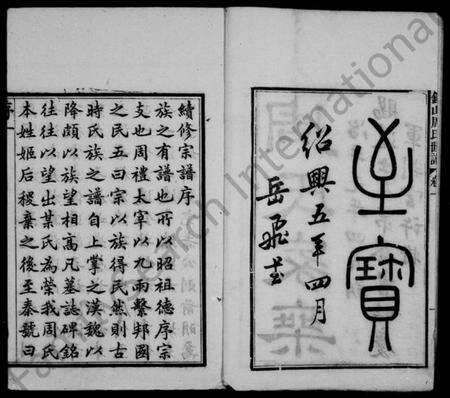 至寶
紹興五年四月
岳飛書
續修宗譜序
族之有譜也所以昭祖德序宗
支也周禮太宰以九兩繫邦國
之民五曰宗以族得民然則古
時氏族之譜自上掌之漢魏以
降頗以族望相高凡墓誌碑銘
往往以望出某氏為榮我周氏
本姓姬后稷棄之後至秦號曰
序一
FamilySearch International